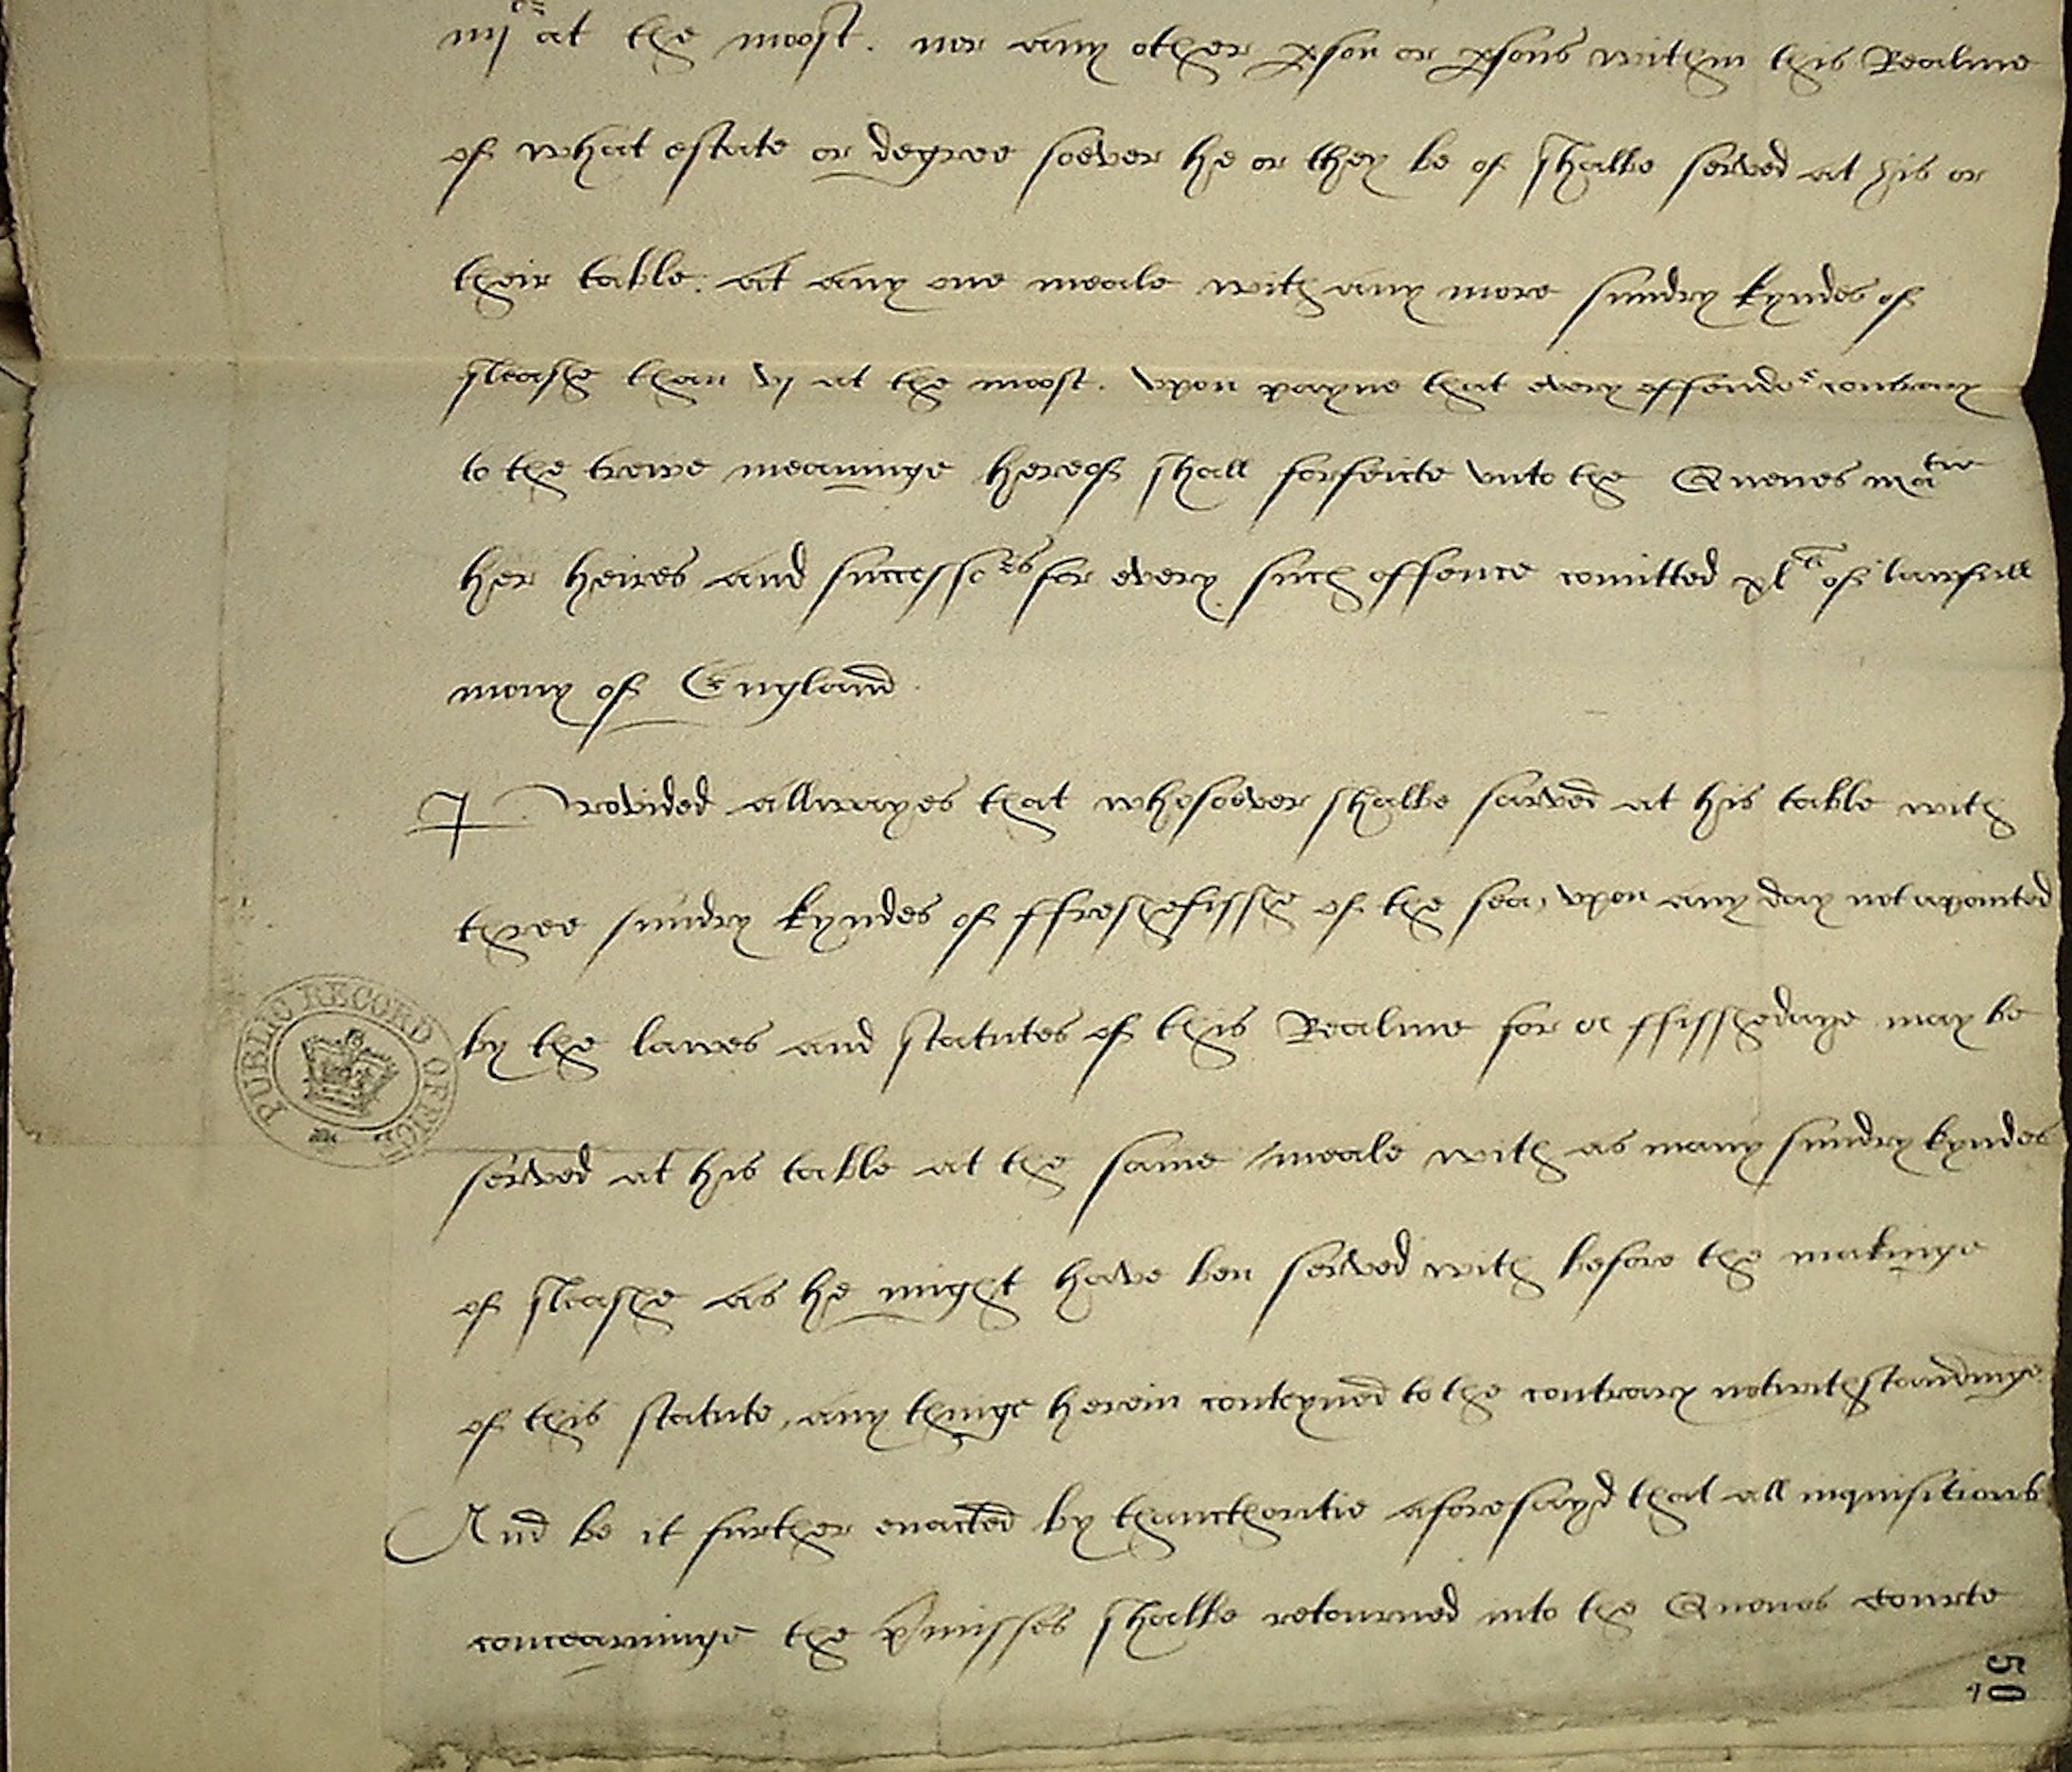 iiij at the moost. nor any other pson or psons within this Realme
of what estate or degree soever he or they be of shalbe served at his or
their table. at any one meale with any more sundry kyndes of
fleashe than vj at the moost. vpon payne that every offendor contrary
to the trewe meaninge hereof shall forfeicte vnto the Quenes matie
her heires and successors for every such offence comitted xl li of lawfull
mony of England.
Provided allwayes that whosoever shalbe sarved at his table with
three sundry kyndes of ffreshefisshe of the sea, vpon any day not apointed
by the lawes and statutes of this Realme for a ffisshedaye may be
served at his table at the same meale with as many sundry kyndes
of fleashe as he might have ben served with before the makinge
of this statute, any thinge herein conteyned to the contrary notwithstandinge.
And be it further enacted by thaucthoritie aforesayd that all inquisitions
concearninge the pmisses shalbe retourned into the Quenes courte
PUBLIC RECORD OFFICE
50